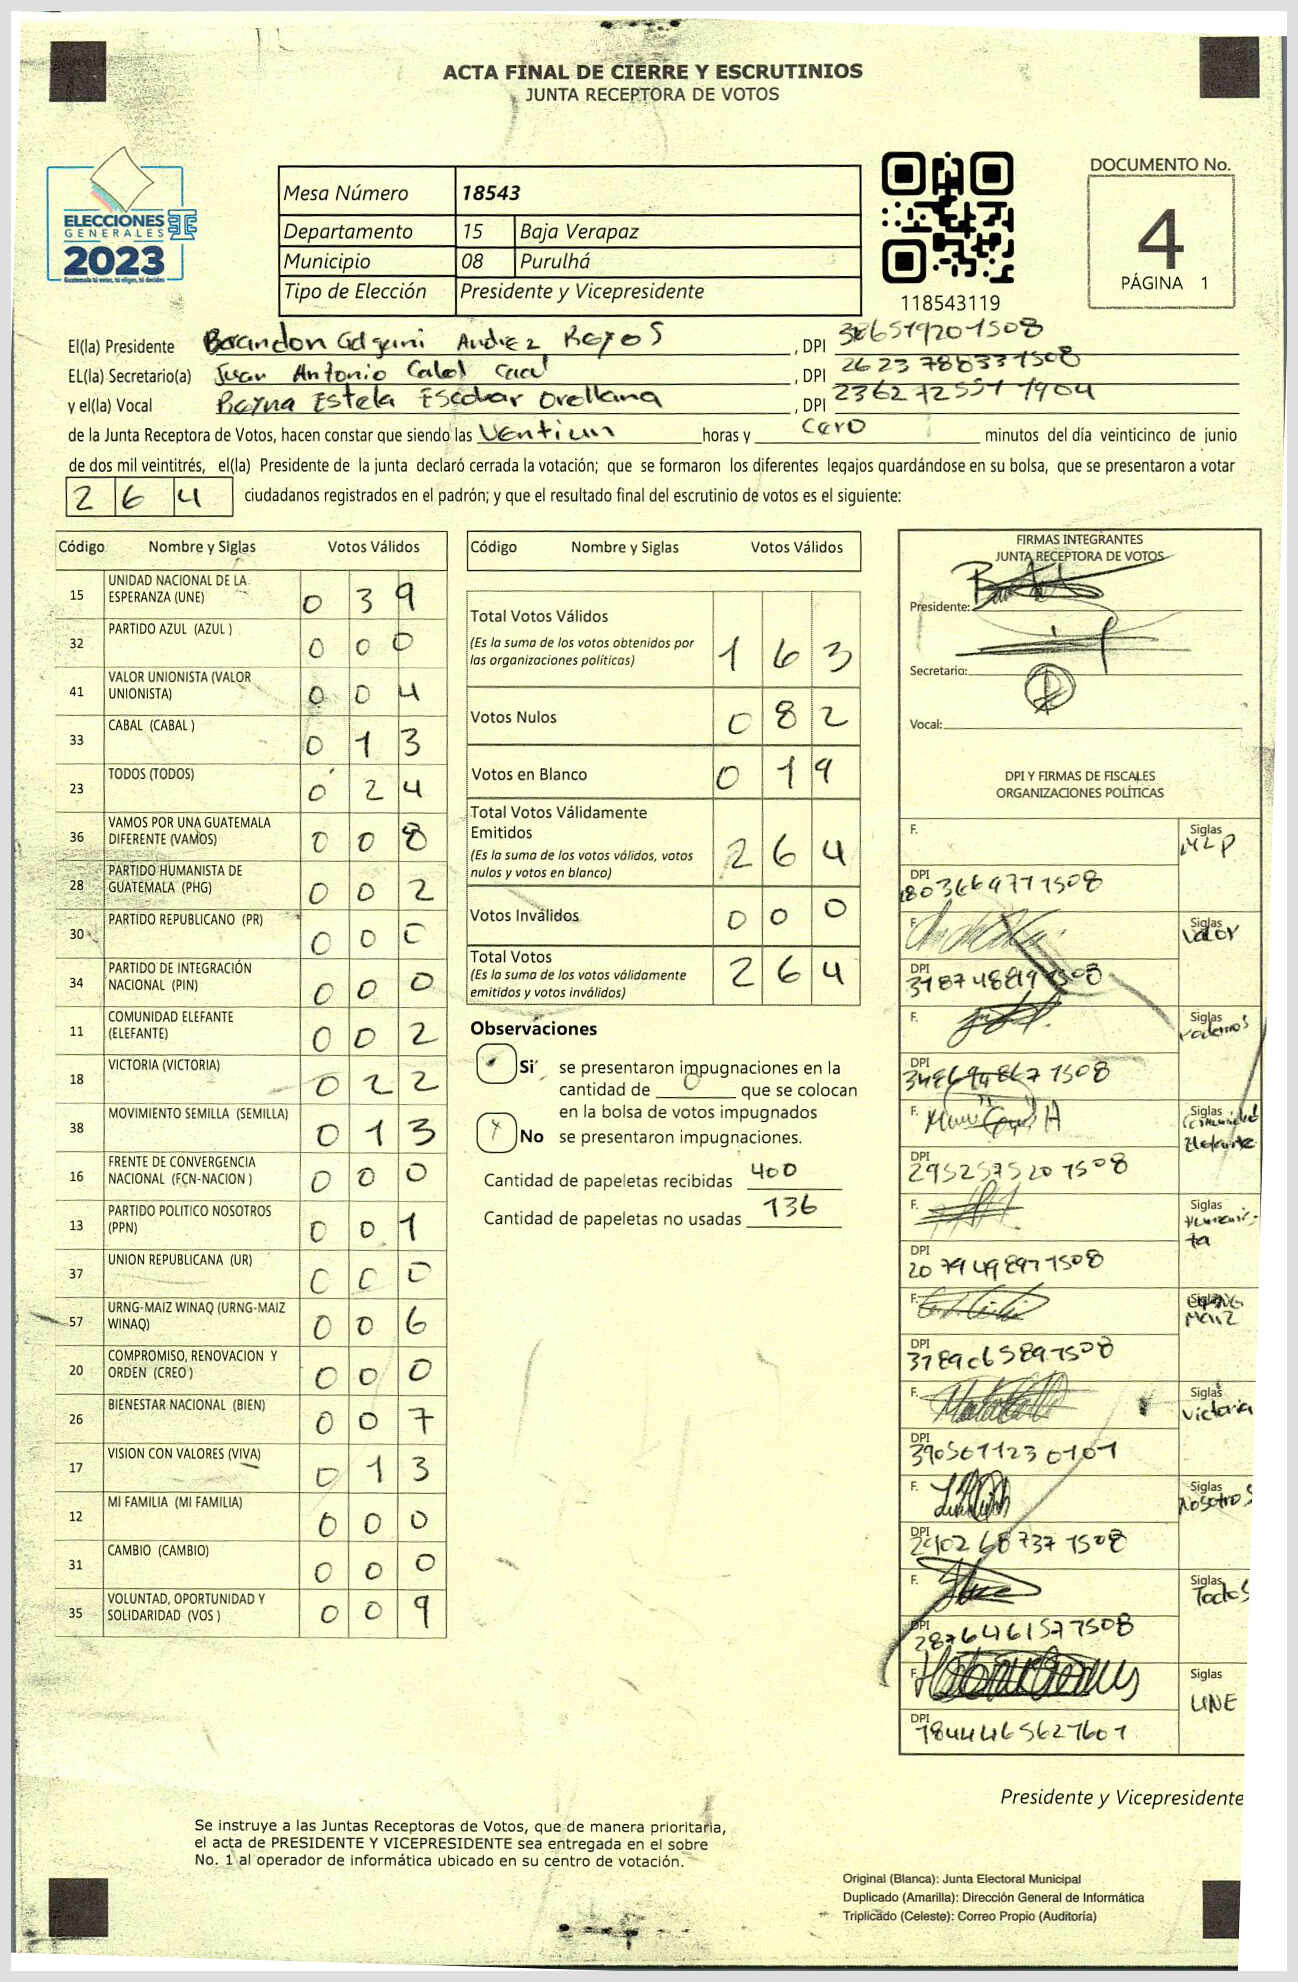 ACTA FINAL DE CIERRE Y ESCRUTINIOS
JUNTA RECEPTORA DE VOTOS
ELECCIONES
GENERALES
2023
Guatemala tú votas, tú eliges, tú decides
Mesa Número 18543
Departamento 15 Baja Verapaz
Municipio 08 Purulhá
Tipo de Elección Presidente y Vicepresidente
118543119
DOCUMENTO No.
4
PÁGINA 1
El(la) Presidente Brandon , DPI
EL(la) Secretario(a) Juan Antonio Caal , DPI 2623788331508
y el(la) Vocal Reyna Estela Escobar Orellana , DPI
de la Junta Receptora de Votos, hacen constar que siendo las Ventiun horas y Cero minutos del día veinticinco de junio
de dos mil veintitrés, el(la) Presidente de la junta declaró cerrada la votación; que se formaron los diferentes legajos quardándose en su bolsa, que se presentaron a votar
264 ciudadanos registrados en el padrón; y que el resultado final del escrutinio de votos es el siguiente:
Código Nombre y Siglas Votos Válidos
15 UNIDAD NACIONAL DE LA ESPERANZA (UNE) 039
32 PARTIDO AZUL (AZUL ) 000
41 VALOR UNIONISTA (VALOR UNIONISTA) 004
33 CABAL (CABAL ) 013
23 TODOS (TODOS) 024
36 VAMOS POR UNA GUATEMALA DIFERENTE (VAMOS) 008
28 PARTIDO HUMANISTA DE GUATEMALA (PHG) 002
30 PARTIDO REPUBLICANO (PR) 000
34 PARTIDO DE INTEGRACIÓN NACIONAL (PIN) 000
11 COMUNIDAD ELEFANTE (ELEFANTE) 002
18 VICTORIA (VICTORIA) 022
38 MOVIMIENTO SEMILLA (SEMILLA) 013
16 FRENTE DE CONVERGENCIA NACIONAL (FCN-NACION ) 000
13 PARTIDO POLITICO NOSOTROS (PPN) 001
37 UNION REPUBLICANA (UR) 000
57 URNG-MAIZ WINAQ (URNG-MAIZ WINAQ) 006
20 COMPROMISO, RENOVACION Y ORDEN (CREO ) 000
26 BIENESTAR NACIONAL (BIEN) 007
17 VISION CON VALORES (VIVA) 013
12 MI FAMILIA (MI FAMILIA) 000
31 CAMBIO (CAMBIO) 000
35 VOLUNTAD, OPORTUNIDAD Y SOLIDARIDAD (VOS ) 009
Código Nombre y Siglas Votos Válidos
Total Votos Válidos 163
(Es la suma de los votos obtenidos por
las organizaciones políticas)
Votos Nulos 082
Votos en Blanco 019
Total Votos Válidamente
Emitidos 264
(Es la suma de los votos válidos, votos
nulos y votos en blanco)
Votos Inválidos 000
Total Votos 264
(Es la suma de los votos válidamente
emitidos y votos inválidos)
Observaciones
Si se presentaron impugnaciones en la
cantidad de 0 que se colocan
en la bolsa de votos impugnados
No se presentaron impugnaciones.
Cantidad de papeletas recibidas 400
Cantidad de papeletas no usadas 136
FIRMAS INTEGRANTES
JUNTA RECEPTORA DE VOTOS
Presidente:
Secretario:
Vocal:
DPI Y FIRMAS DE FISCALES
ORGANIZACIONES POLÍTICAS
F. Siglas MLP
DPI
F. Siglas Valor
DPI
F. Siglas Podemos
DPI
F. Siglas Comunidad Elefante
DPI 2952575201508
F. Siglas Humanista
DPI 2079498971508
F. Siglas URNG Maiz
DPI 3189065891508
F. Siglas Victoria
DPI 3905611230101
F. Siglas Nosotros
DPI 2902687371508
F. Siglas Todos
DPI 2876461571508
F. Siglas UNE
DPI
Presidente y Vicepresidente
Se instruye a las Juntas Receptoras de Votos, que de manera prioritaria,
el acta de PRESIDENTE Y VICEPRESIDENTE sea entregada en el sobre
No. 1 al operador de informática ubicado en su centro de votación.
Original (Blanca): Junta Electoral Municipal
Duplicado (Amarilla): Dirección General de Informática
Triplicado (Celeste): Correo Propio (Auditoría)